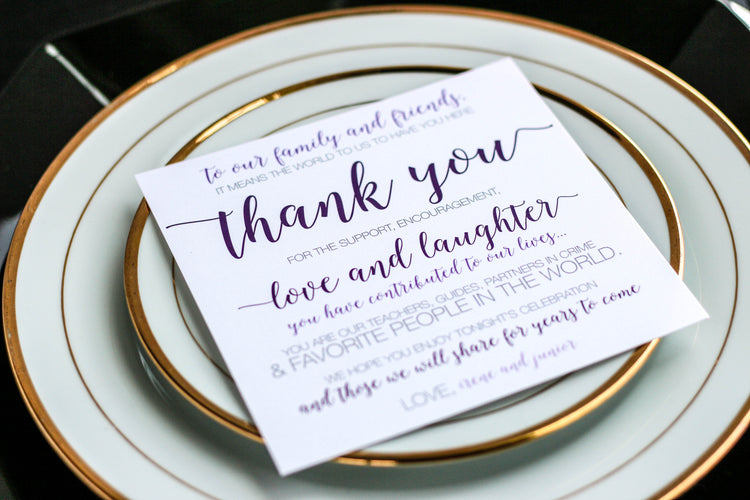 To our family and friends,
IT MEANS THE WORLD TO US TO HAVE YOU HERE.
thank you
FOR THE SUPPORT, ENCOURAGEMENT,
love and laughter
you have contributed to our lives...
YOU ARE OUR TEACHERS, GUIDES, PARTNERS IN CRIME
& FAVORITE PEOPLE IN THE WORLD.
WE HOPE YOU ENJOY TONIGHT'S CELEBRATION
and those we will share for years to come
LOVE, irene and junior